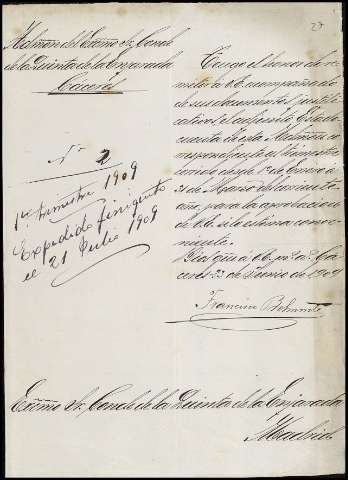 27
Admón del Excmo Sr. Conde
de la Quinta de la Enjarada
Cáceres
Nº 2
1er trimestre 1909
Expedido finiquito
el 21 Julio 1909
Tengo el honor de re-
mitir a VE. acompañada
de sus documentos justifi-
cativos la adjunta
cuenta de esta Admón co-
rrespondiente al trimestre
corrido desde 1º de Enero a
31 de Marzo del corriente
año, para la aprobacion
de VE. si lo estima conve-
niente.
Dios gue a VE. ms as Cá-
ceres 23 de Junio de 1909
Francisco
Excmo Sr. Conde de la Quinta de la Enjarada
Madrid